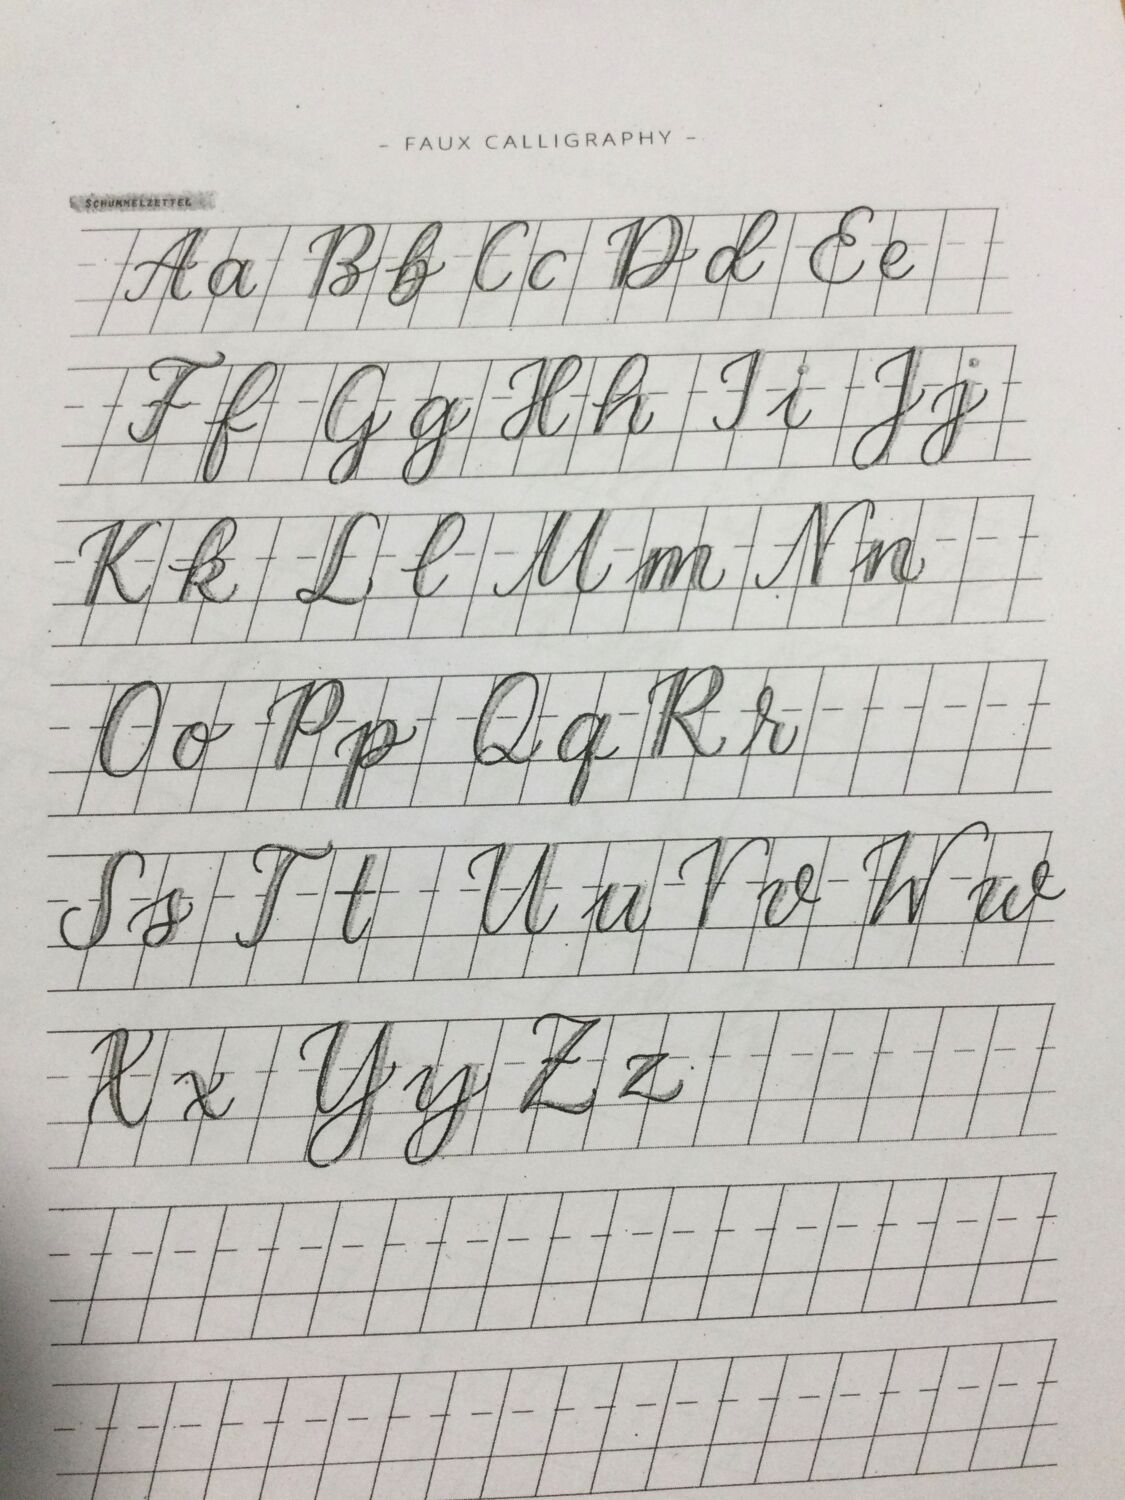 - FAUX CALLIGRAPHY -
SCHUMMELZETTEL
Aa Bb Cc Dd Ee
Ff Gg Hh Ii Jj
Kk Ll Mm Nn
Oo Pp Qq Rr
Ss Tt Uu Vv Ww
Xx Yy Zz